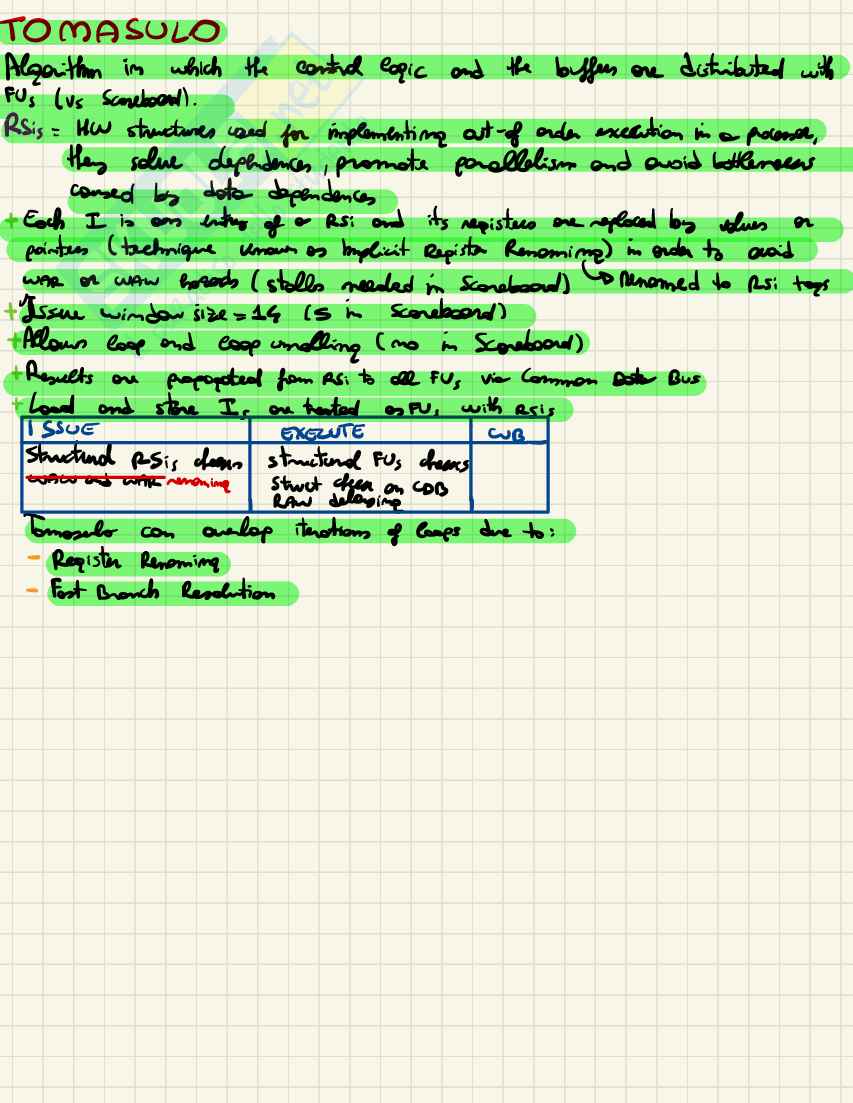 TOMASULO
Algorithm in which the control logic and the buffers are distributed with
FUs (vs Scoreboard).
RSis = HW structures used for implementing out-of order execution in a processor,
they solve dependences, promote parallelism and avoid bottlenecks
caused by data dependences
+ Each I is an entry of a RSi and its registers are replaced by values or
pointers (technique known as Implicit Register Renaming) in order to avoid
WAR or WAW hazards (stalls needed in Scoreboard) ↳ Renamed to RSi tags
+ Issue window size = 14 (5 in Scoreboard)
+ Allows loop and loop unrolling (no in Scoreboard)
+ Results are propagated from RSi to all FUs via Common Data Bus
+ Load and store Is are treated as FUs with RSis
ISSUE EXECUTE WB
Structural RSis checks structural FUs checks
WAW and WAR renaming struct check on CDB
RAW delaying
Tomasulo can overlap iterations of loops due to:
- Register Renaming
- Fast Branch Resolution